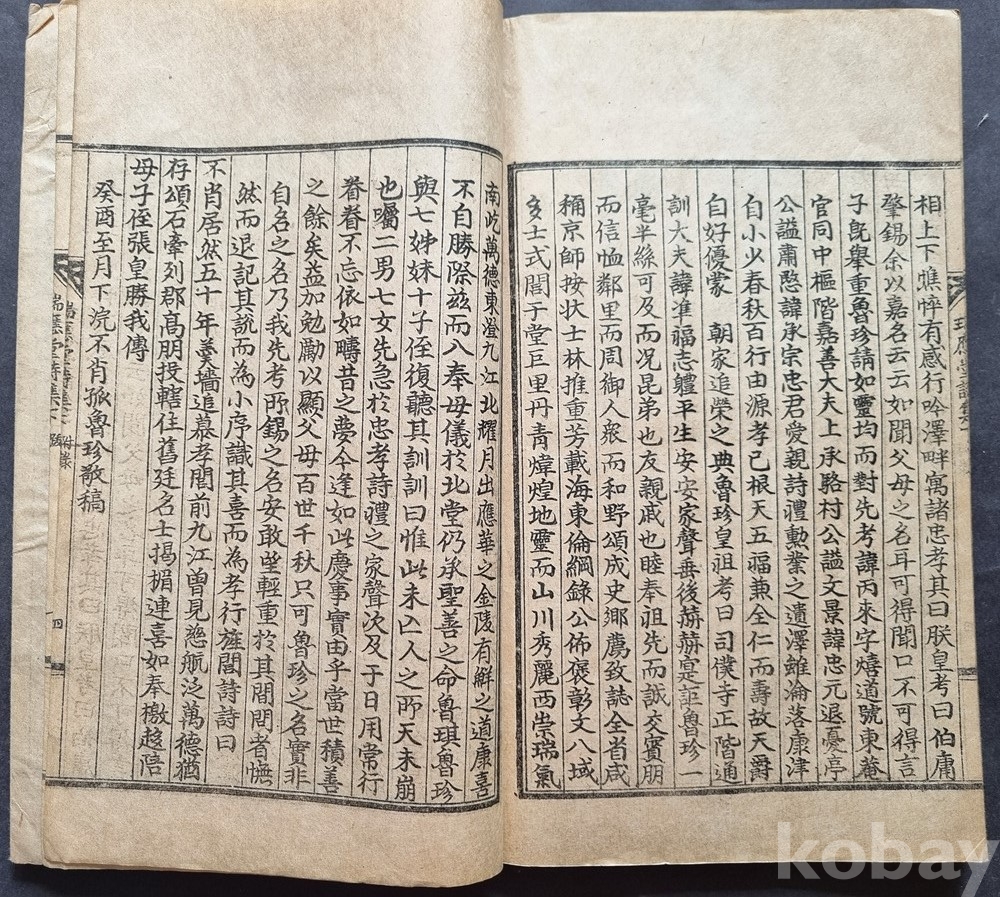 相上下憔悴有感行吟澤畔寓諸忠孝其曰朕皇考曰伯庸
肇錫余以嘉名云云如聞父母之名耳可得聞口不可得言
子旣擧重魯珍請如靈均而對先考諱丙來字熺道號東菴
官同中樞階嘉善大夫上承駱村公謚文景諱忠元退憂亭
公謚肅愍諱承宗忠君愛親詩禮勳業之遺澤雖淪落康津
自小以春秋百行由源孝己根天五福兼全仁而壽故天爵
自好優蒙 朝家追榮之典魯珍皇祖考曰司僕寺正階通
訓大夫諱準福志軆平生安安家聲垂後赫赫寔詎魯珍一
毫半絲可及而况昆弟也友親戚也睦奉祖先而誠交賓朋
而信恤鄰里而周御人衆而和野頌成史鄕薦致誌全省咸
稱京師按狀士林推重芳載海東倫綱錄公佈褒彰文八域
多士式閭于堂巨里丹靑煒煌地靈而山川秀麗西崇瑞氣
南屹萬德東澄九江北耀月出應華之金陵有鮮之道康喜
不自勝際玆而八奉母儀於北堂仍承聖善之命魯琪魯珍
與七姊妹十子侄復聽其訓訓曰惟此未亡人之所天未崩
也囑二男七女先急於忠孝詩禮之家聲次及于日用常行
眷眷不忘依如疇昔之夢今逢如此慶事實由乎當世積善
之餘矣益加勉勵以顯父母百世千秋只可魯珍之名實非
自名之名乃我先考所錫之名安敢坐輕重於其間問者憮
然而退記其說而為小序識其喜而為孝行旌閭詩詩曰
不肖居然五十年羹墻追慕孝閭前九江曾見慈航泛萬德猶
存頌石牽列郡高朋投轄住舊廷名士揭楣連喜如奉檄趍陪
母子侄張皇勝我傳
癸酉至月下浣不肖孤魯珍敬稿
附錄
四
kobay